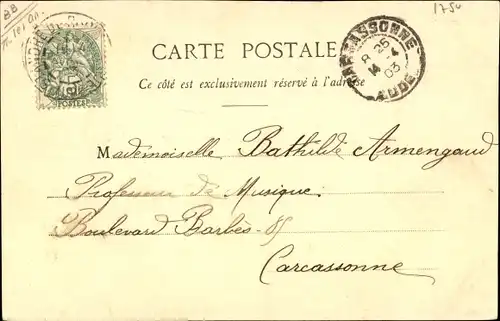 BB
1750
CARTE POSTALE
Ce côté est exclusivement réservé à l'adresse
POSTES
CARCASSONNE
8 25
14 -4
03
AUDE
Mademoiselle Bathilde Armengaud
Professeur de Musique
Boulevard Barbès - 85
Carcassonne